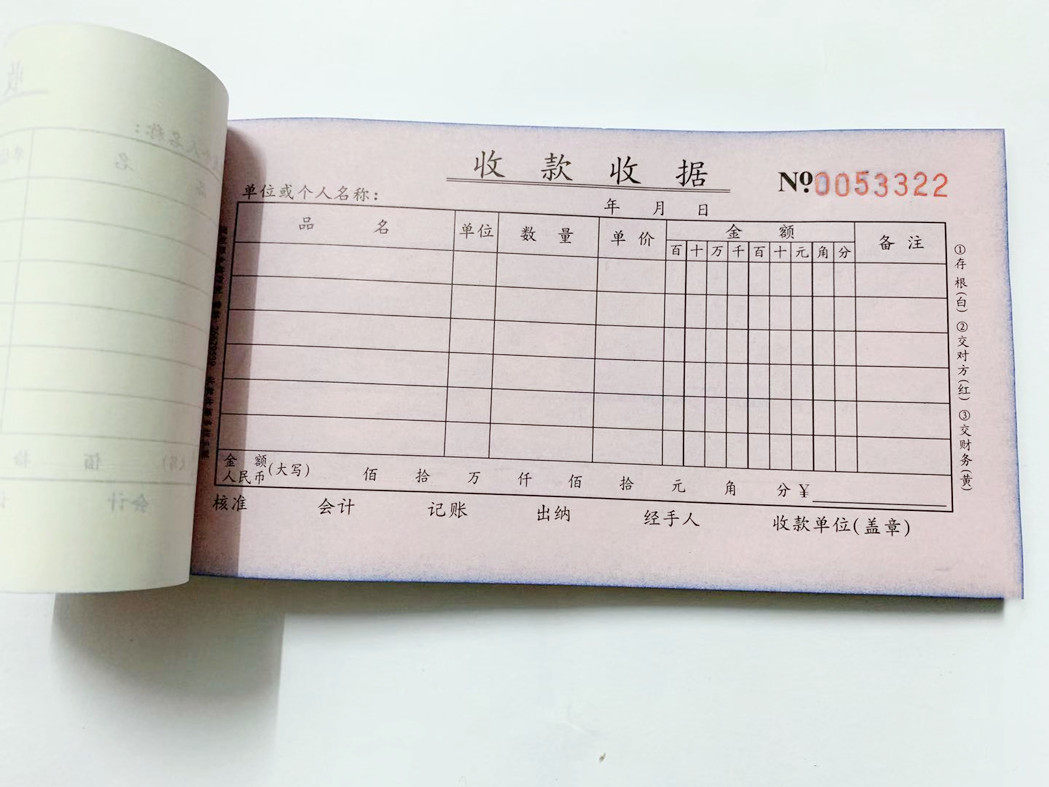 收款收据
№0053322
单位或个人名称:
年 月 日
品名 单位 数量 单价 金额 备注
百 十 万 千 百 十 元 角 分
金额
人民币(大写) 佰 拾 万 仟 佰 拾 元 角 分 ¥
核准 会计 记账 出纳 经手人 收款单位(盖章)
①存根(白) ②交对方(红) ③交财务(黄)